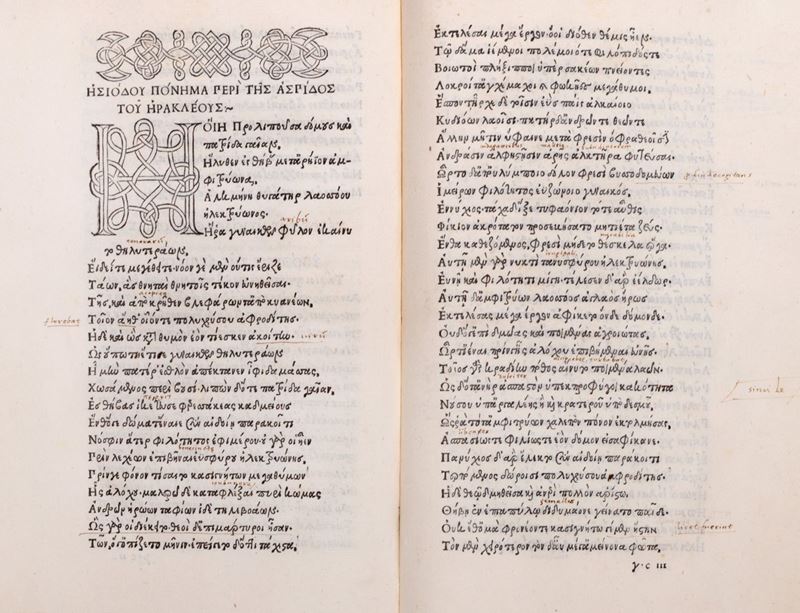 ΗΣΙΟΔΟΥ ΠΟΝΗΜΑ ΠΕΡΙ ΤΗΣ ΑΣΠΙΔΟΣ
ΤΟΥ ΗΡΑΚΛΕΟΥΣ:~
Η ΟΙΗ Προλιποῦσα δόμους καὶ
πατρίδα γαῖαν,
Ηλυθεν ἐς θήβας μετ' ἀρήϊον ἀμ-
φιτρύωνα,
Αλκμήνη θυγάτηρ λαοσσόου
ἠλεκτρύωνος.
Ηῥα γυναικῶν φῦλον ἐκαίνυ
το θηλυτεράων.
Εἴδεί τε μεγέθει τε. νόον γε μὲν οὔτις ἔριζε
Τάων, ἃς θνηταὶ θνητοῖς τέκον εὐνηθεῖσαι.
Τῆς καὶ ἀπὸ κρῆθεν βλεφάρων τ' ἀπὸ κυανέων,
Τοῖον ἄηθ' οἷόν τε πολυχρύσου ἀφροδίτης.
Η δὲ καὶ ὣς κατὰ θυμὸν ἑὸν τίεσκεν ἀκοίτην.
Ως οὔπω τις ἔτισε γυναικῶν θηλυτεράων
Η μὲν πατέρ' ἐσθλὸν ἀπέκτανεν ἶφι δαμάσσας,
Χωσάμενος περὶ βουσί. λιπὼν δ' ὅγε πατρίδα γαῖαν,
Ες θήβας ἱκέτευσε φερεσσακέας καδμείους
Ενθ' ὅγε δώματ' ἔναιε σὺν αἰδοίῃ παρακοίτι
Νόσφιν ἄτερ φιλότητος ἐφιμέρου. οὐ γὰρ οἱ ἦεν
Πρὶν λεχέων ἐπιβῆναι ἐϋσφύρου ἠλεκτρυώνης.
Πρίν γε φόνον τίσαιτο κασιγνήτων μεγαθύμων
Ης ἀλόχου. μαλερῷ δὲ καταφλέξαι πυρὶ κώμας
Ανδρῶν ἡρώων ταφίων ἰδὲ τηλεβοάων.
Ως γάρ οἱ διέκειτο. θεοὶ δ' ἐπιμάρτυροι ἦσαν.
Των, ὅγ' ὀπίζετο μῆνιν. ἐπείγετο δ' ὅττι τάχιστα,
Εκτελέσαι μέγα ἔργον. ὅ οἱ διόθεν θέμις ἦεν.
Τῷ δ' ἅμα ἱέμενοι πολέμοιό τε φυλόπιδός τε
Βοιωτοὶ πλήξιπποι ὑπὲρ σακέων πνείοντες
Λοκροί τ' ἀγχέμαχοι καὶ φωκῆες μεγάθυμοι.
Εσποντ'. ἦρχε δὲ τοῖσιν ἐῢς παῖς ἀλκαίοιο
Κυδιόων λαοῖσι. πατὴρ δ' ἀνδρῶν τε θεῶν τε
Αλλην μῆτιν ὕφαινε μετὰ φρεσὶν ὄφρα θεοῖσιν
Ανδράσιν ἀλφηστῇσιν ἀρῆς ἀλκτῆρα φυτεύσαι.
Ωρτο δ' ἀπ' οὐλύμποιο δόλον φρεσὶ βυσσοδομεύων
Ιμείρων φιλότητος ἐϋζώνοιο γυναικός.
Εννύχιος. τάχα δ' ἷξε τυφαόνιον. τόθεν αὖθις
Φίκιον ἀκρότατον προσεβήσατο μητίετα ζεύς.
Ενθα καθεζόμενος, φρεσὶ μήδετο θέσκελα ἔργα.
Αὐτῇ μὲν γὰρ νυκτὶ τανυσφύρου ἠλεκτρυώνης.
Εὐνῇ καὶ φιλότητι μίγη. τέλεσεν δ' ἄρ' ἐέλδωρ.
Αὐτῇ δ' ἀμφιτρύων λαοσσόος ἀγλαὸς ἥρως
Εκτελέσας μέγα ἔργον ἀφίκετο ὅνδε δόμονδε.
Οὐδ' ὅγ' ἐπὶ δμῶας καὶ ποιμένας ἀγροιώτας,
Ωρτ' ἰέναι πρίν γ' ἧς ἀλόχου ἐπιβήμεναι εὐνῆς.
Τοῖος γὰρ κραδίην πόθος αἴνυτο ποιμένα λαῶν.
Ως δ' ὅτ' ἀνὴρ ἀσπαστὸν ὑπεκπροφύγοι κακότητα
Νούσου ὑπ' ἀργαλέης ἢ καὶ κρατεροῦ ὑπὸ δεσμοῦ.
Ως ῥα τότ' ἀμφιτρύων χαλεπὸν πόνον ἐκτολυπεύσας.
Ασπασίως τε φίλως τε ἑὸν δόμον εἰσαφίκανε.
Παννύχιος δ' ἄρ' ἔλεκτο σὺν αἰδοίῃ παρακοίτι
Τερπόμενος δώροισι πολυχρύσου ἀφροδίτης.
Η δὲ θεῷ δμηθεῖσα καὶ ἀνέρι πολλὸν ἀρίστῳ.
Θήβῃ ἐν ἑπταπύλῳ διδυμάονε γείνατο παῖδε.
Οὐκ ἔθ' ὁμὰ φρονέοντε κασιγνήτω γε μὲν ἤστην
Τὸν μὲν χειρότερον τὸν δ' αὖ μέγ' ἀμείνονα φῶτα.
γ·ς III